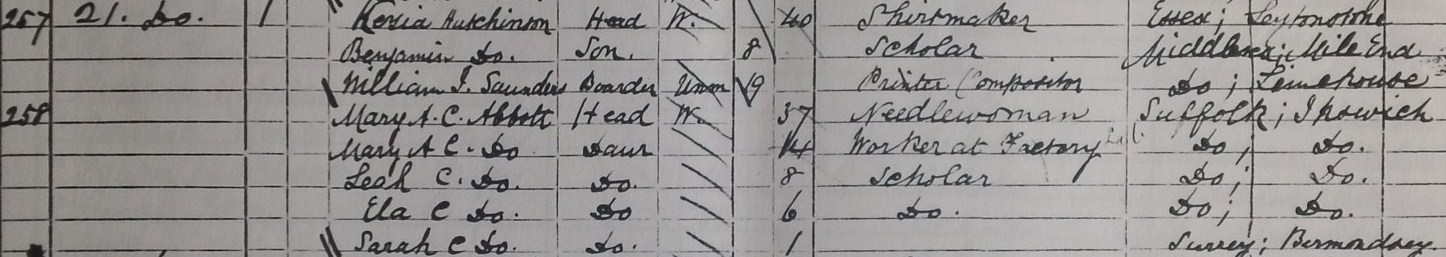 257 21. Do. 1 Kezia Hutchinson Head W. 40 Shirtmaker Essex; Leytonstone
Benjamin Do. Son. 8 Scholar Middlesex; Mile End
William J. Saunders Boarder Unm 19 Printer Compositor Do; Limehouse
258 Mary A. C. Abbott Head W. 37 Needlewoman Suffolk; Ipswich
Mary A C. Do Daur 14 Worker at Factory Do; Do.
Leah C. Do. Do. 8 Scholar Do; Do.
Ela C Do. Do 6 Do. Do; Do.
Sarah C Do. Do. 1 Surrey; Bermondsey.